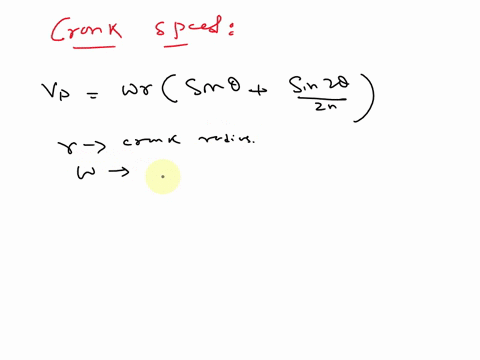 Crank speed:
Vp = ωr ( Sinθ + Sin 2θ / 2n )
r → crank radius.
ω →